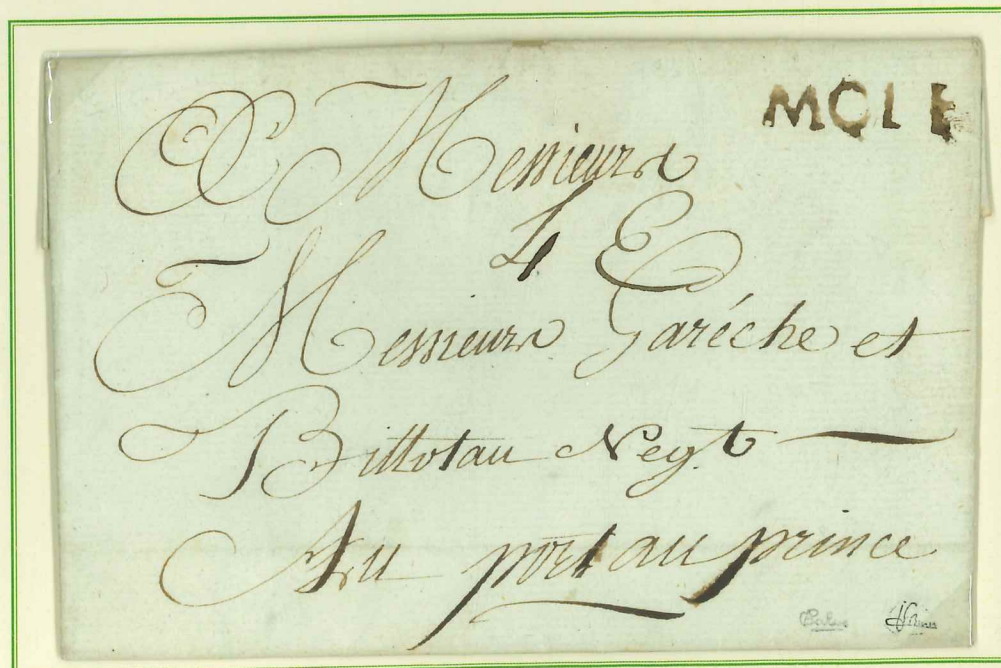 MOLE
A Messieurs
4
Messieurs Garéche et
Billotau Negt
Au port au prince